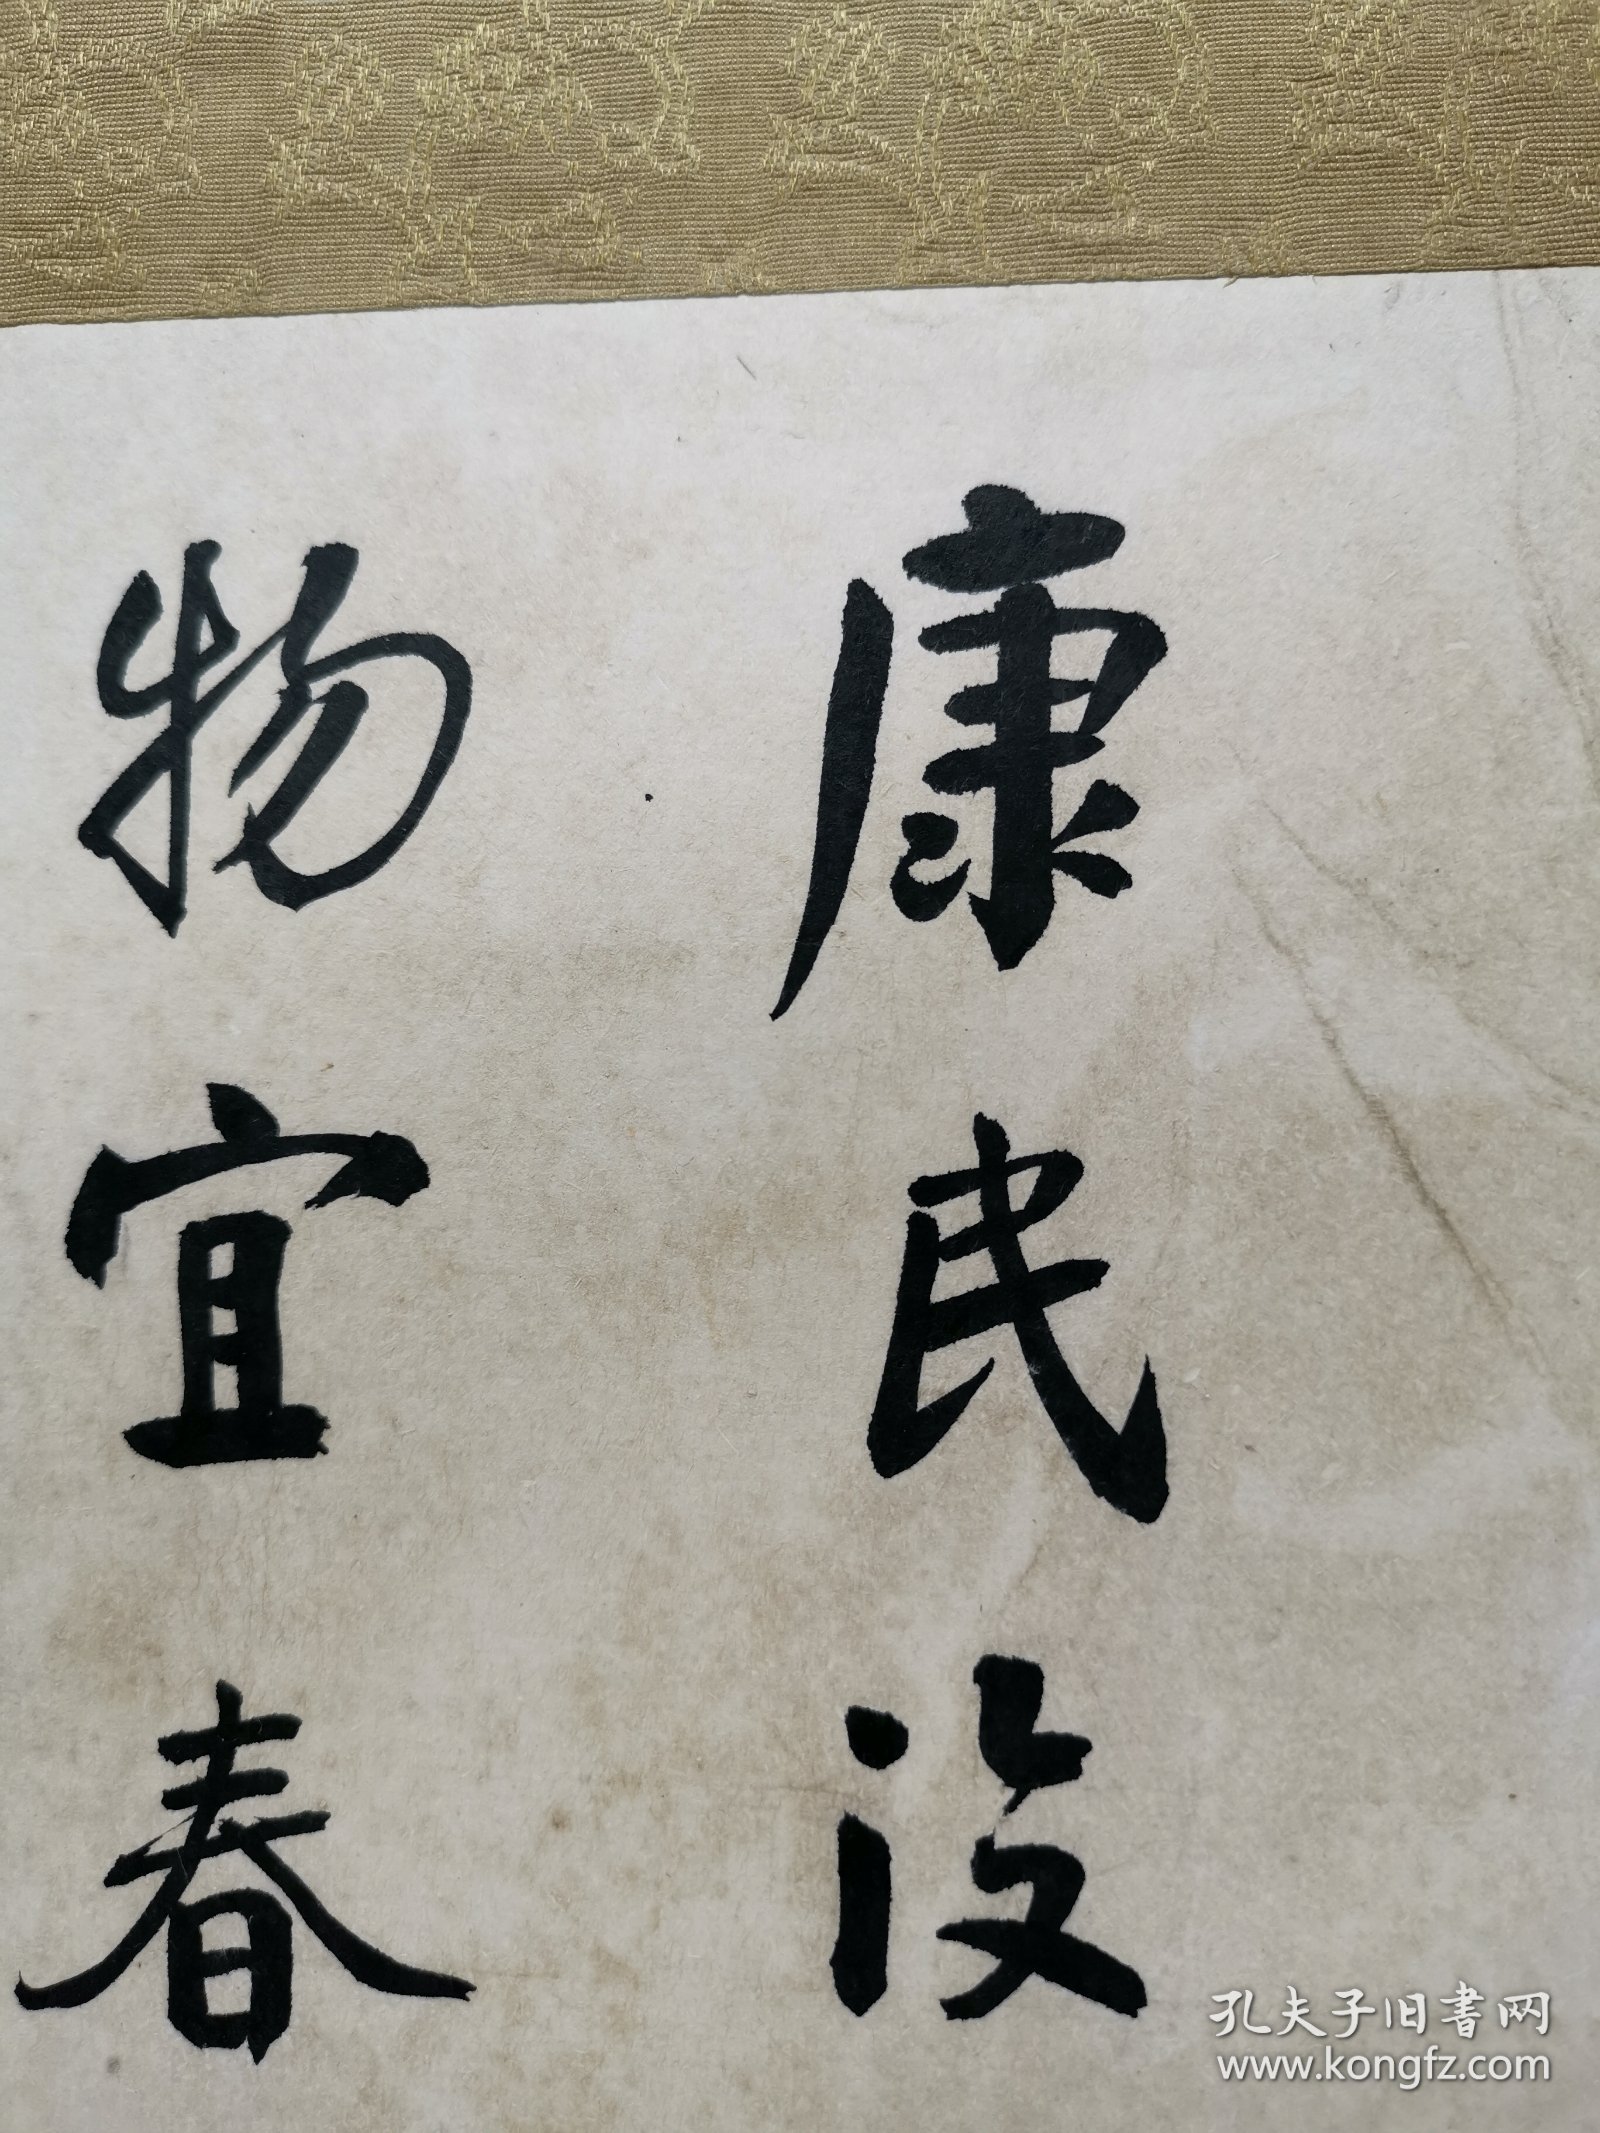 康民没
物宜春
孔夫子旧书网
www.kongfz.com